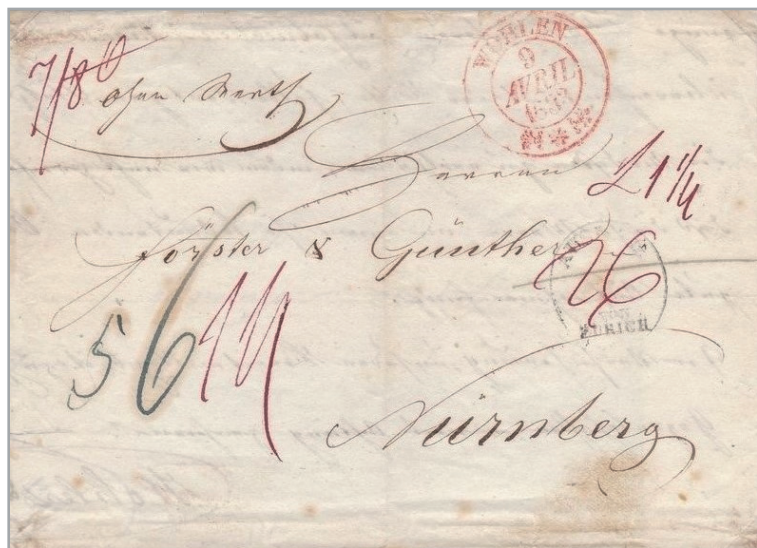 WOHLEN
9
AVRIL
7/8
ohne Werth
Herren
L 1 1/4
Förster & Günther
26
ZÜRICH
56
Nürnberg